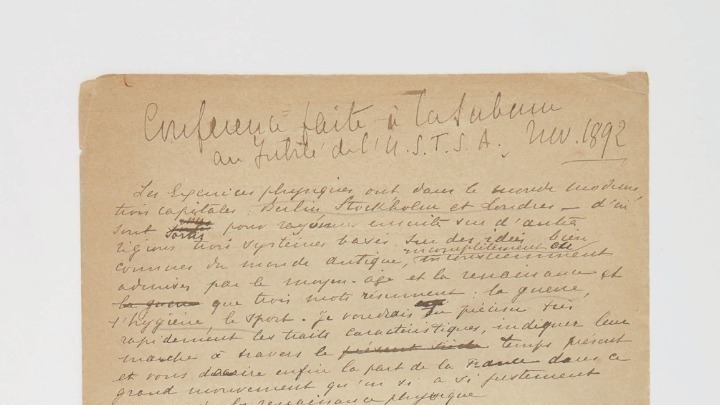 Conférence faite à la Sorbonne
au Jubilé de l'U.S.F.S.A. Nov. 1892
Les Exercices physiques ont dans le monde moderne
trois capitales : Berlin Stockholm et Londres – d'où
sont sortis pour rayonner ensuite sur d'autres
régions trois systèmes basés sur des idées bien
connues du monde antique, incomplètement et inconsciemment
admises par le moyen-âge et la renaissance et
la guerre que trois mots résument : la guerre,
l'hygiène, le sport. Je voudrais en préciser très
rapidement les traits caractéristiques, indiquer leur
marche à travers le présent siècle temps présent
et vous dire enfin la part de la France dans ce
grand mouvement qu'on a si justement
la renaissance physique